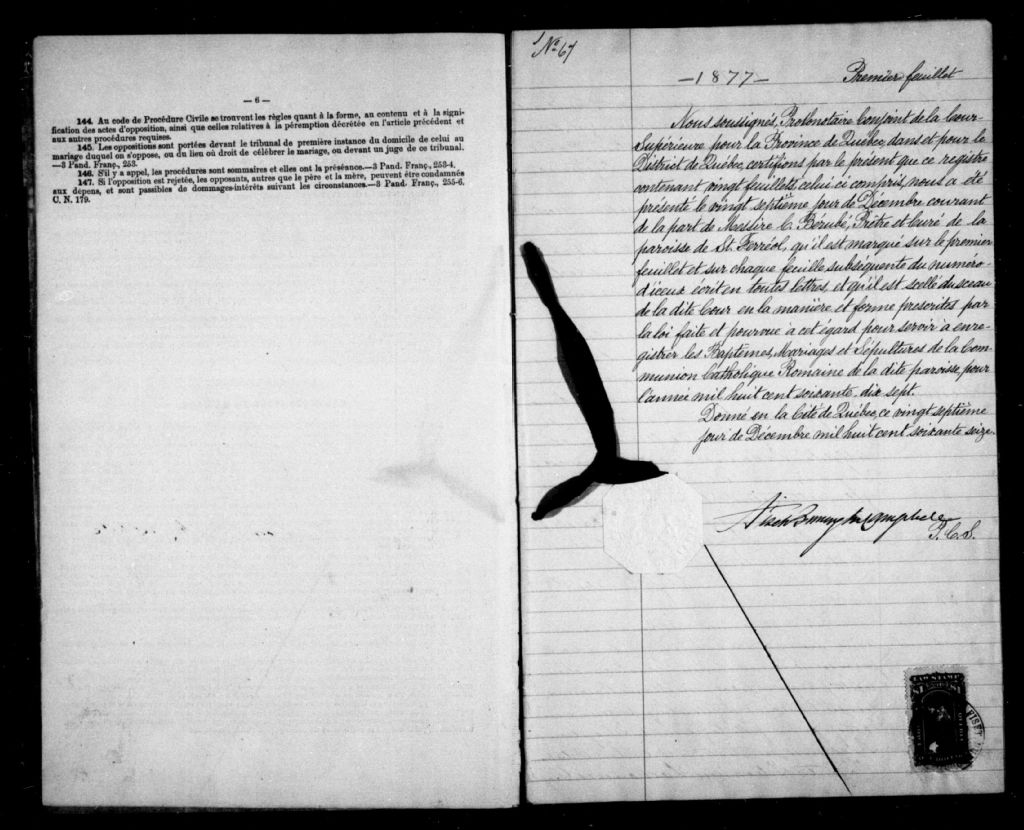 — 6 —
144. Au code de Procédure Civile se trouvent les règles quant à la forme, au contenu et à la signi-
fication des actes d'opposition, ainsi que celles relatives à la péremption décrétée en l'article précédent et
aux autres procédures requises.
145. Les oppositions sont portées devant le tribunal de première instance du domicile de celui au
mariage duquel on s'oppose, ou du lieu où droit de célébrer le mariage, ou devant un juge de ce tribunal.
—3 Pand. Franç., 253.
146. S'il y a appel, les procédures sont sommaires et elles ont la préséance.—3 Pand. Franç., 253-4.
147. Si l'opposition est rejetée, les opposants, autres que le père et la mère, peuvent être condamnés
aux dépens, et sont passibles de dommages-intérêts suivant les circonstances.—3 Pand. Franç., 255-6.
C. N. 179.
No. 67
— 1877 —
Premier feuillet
Nous soussignés, Protonotaire Conjoint de la Cour
Supérieure pour la Province de Québec, dans et pour le
District de Québec, certifions par le présent que ce registre
contenant vingt feuillets celui ci compris, nous a été
présenté le vingt septième jour de Décembre courant
de la part de Messire C. Bérubé, Prêtre et Curé de la
paroisse de St. Ferréol, qu'il est marqué sur le premier
feuillet et sur chaque feuille subséquente du numéro
d'iceux écrit en toutes lettres, et qu'il est scellé du sceau
de la dite Cour en la manière et forme prescrites par
la loi faite et pourvue à cet égard pour servir à enre-
gistrer les Baptêmes, Mariages et Sépultures de la Com-
munion Catholique Romaine de la dite paroisse, pour
l'année mil huit cent soixante dix sept.
Donné en la Cité de Québec, ce vingt septième
jour de Décembre mil huit cent soixante seize.
Campbell
P. C. S.
LAW STAMP